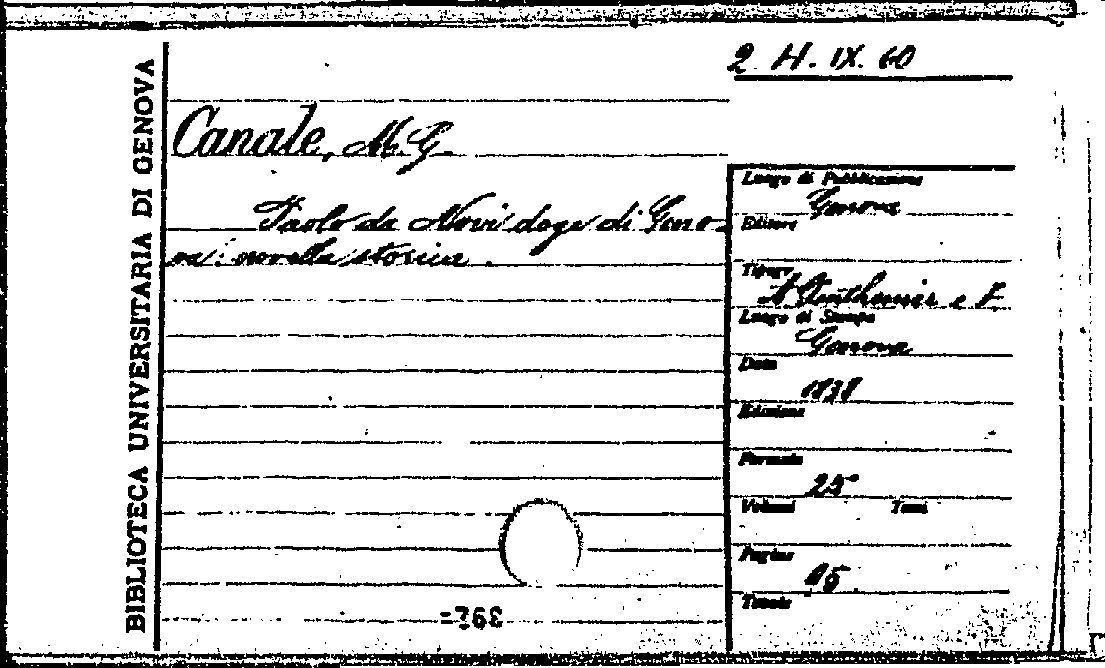 2 H. IX. 60
BIBLIOTECA UNIVERSITARIA DI GENOVA
Canale, M. G.
Paolo da Novi doge di Geno-
va: novella storica.
Luogo di Pubblicazione
Genova
Editore
Tipogr.
A. Ponthenier e F.
Luogo di Stampa
Genova
Data
1838
Edizione
Formato
25°
Volumi Tomi
Pagine
95
Tavole